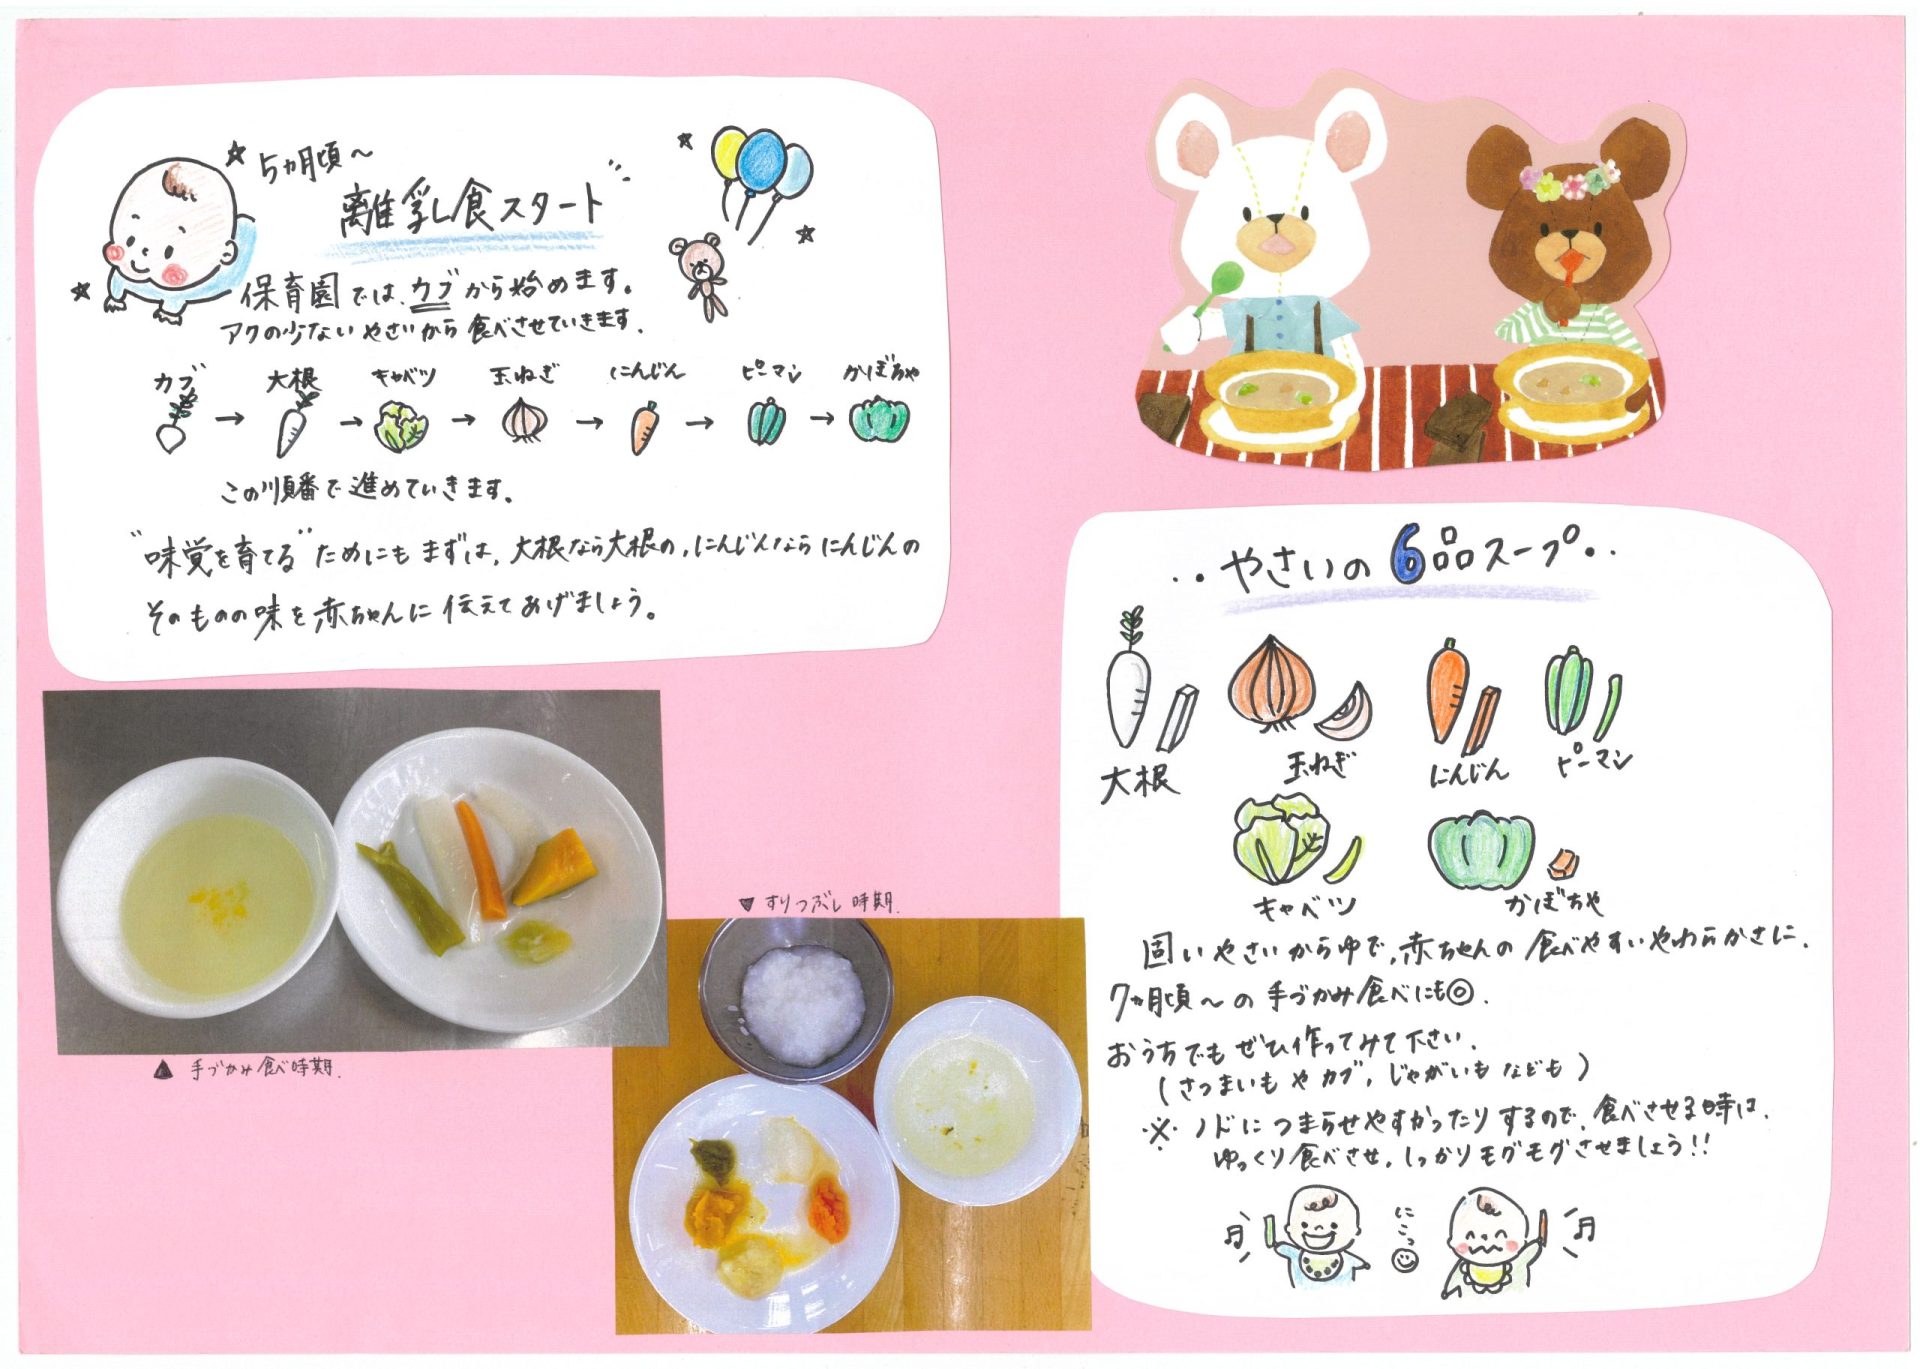 5ヵ月頃～
離乳食スタート
保育園では、カブから始めます。
アクの少ないやさいから食べさせていきます.
カブ → 大根 → キャベツ → 玉ねぎ → にんじん → ピーマン → かぼちゃ
この順番で進めていきます。
"味覚を育てる"ためにもまずは,大根なら大根の,にんじんならにんじんの
そのものの味を赤ちゃんに伝えてあげましょう。
▲ 手づかみ食べ時期.
▼ すりつぶし時期.
‥やさいの6品スープ‥
大根
玉ねぎ
にんじん
ピーマン
キャベツ
かぼちゃ
固いやさいからゆで,赤ちゃんの食べやすいやわらかさに.
7ヵ月頃～の手づかみ食べにも◎.
おうちでもぜひ作ってみて下さい.
(さつまいもやカブ,じゃがいもなども)
※ノドにつまらせやすかったりするので,食べさせる時は.
ゆっくり食べさせ,しっかりモグモグさせましょう!!
にこっ